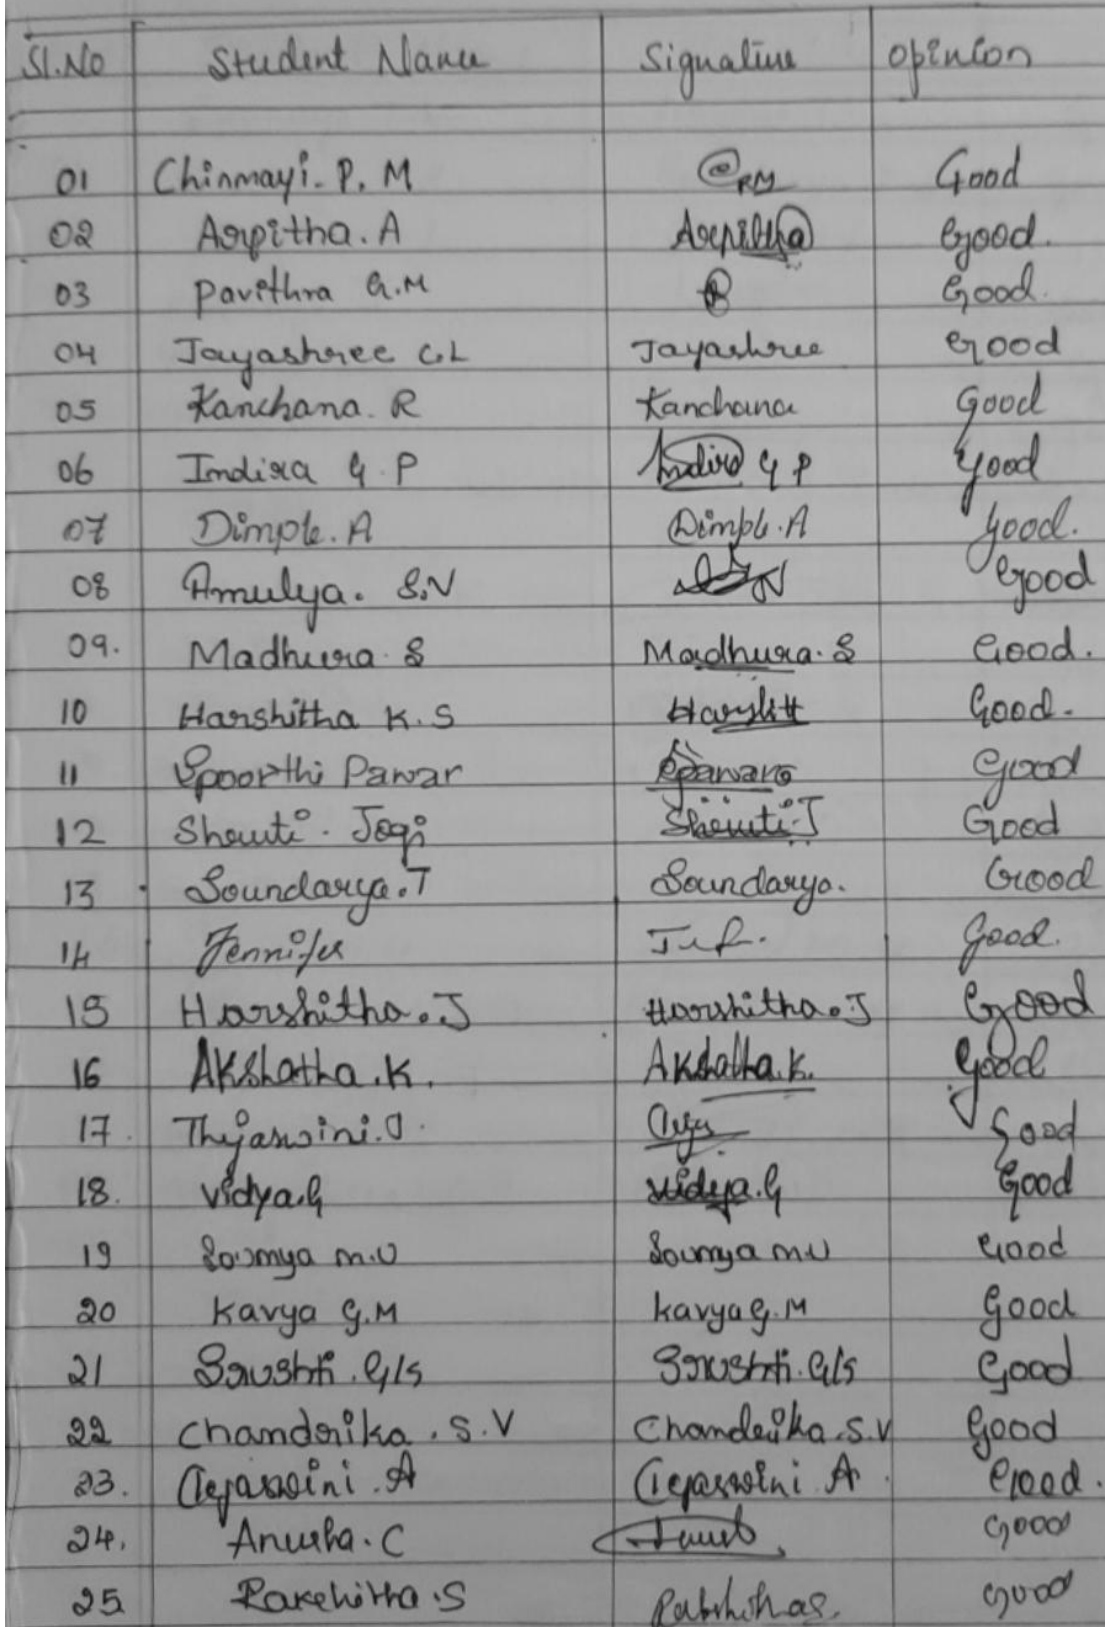 Sl.No Student Name Signature Opinion
01 Chinmayi. P. M @RM Good
02 Arpitha. A Arpitha Good.
03 Pavithra G.M Good.
04 Jayashree G.L Jayashree Good
05 Kanchana. R Kanchana Good
06 Indira G. P Indira G P Good
07 Dimple. A Dimple. A Good.
08 Amulya. S.N Good
09. Madhura. S Madhura. S Good.
10 Harshitha K. S Good.
11 Spoorthi Pawar SPawar Good
12 Shruti. Jogi Shruti. J Good
13 Soundarya. T Soundarya. Good
14 Jennifer Good.
15 Harshitha. J Harshitha. J Good
16 Akshatha. K. Akshatha. K. Good
17. Thejaswini. J. Good
18. Vidya. G Vidya. G Good
19 Soumya M.U Soumya M.U Good
20 Kavya G.M Kavya G. M Good
21 Srushti. G/S Srushti. G/S Good
22 Chandrika. S. V Chandrika. S. V Good
23. Tejaswini. A Tejaswini. A Good.
24. Anusha. C Good
25 Rakshitha. S Rakshitha S. Good